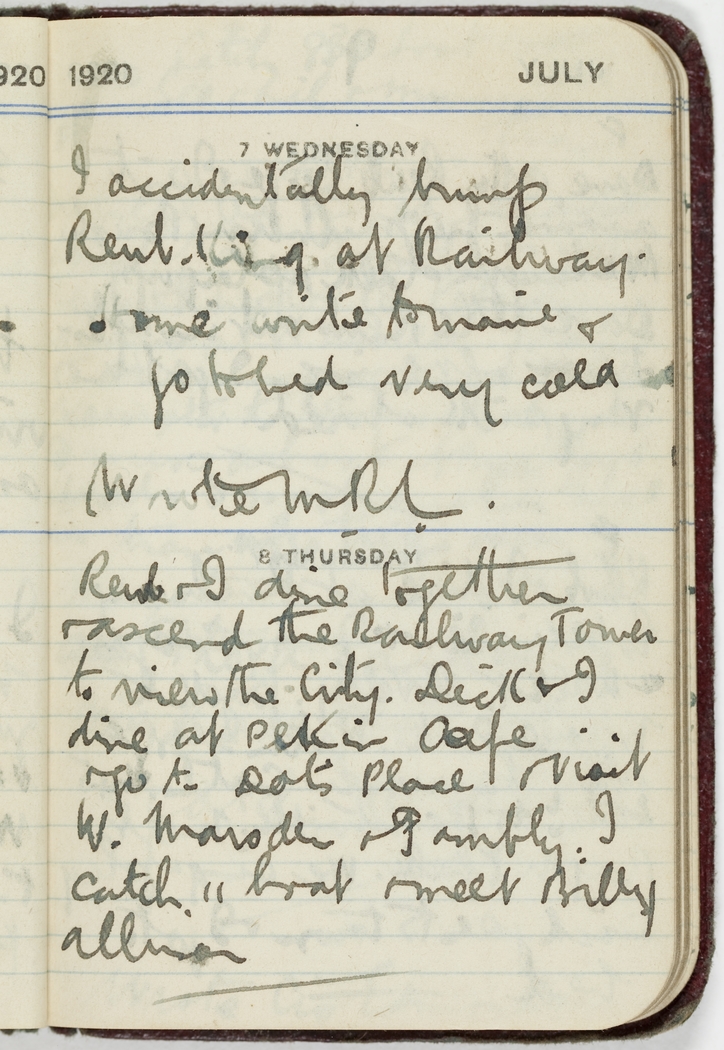 920 1920 JULY
7 WEDNESDAY
I accidentally bump
Reub. King. at Railway.
Home write to marie &
go to bed very cold
Write
8 THURSDAY
Reub & I dine together
& ascend the Railway Tower
to view the City. Dick & I
dine at Pekin Cafe
& go to Dots Place & visit
W. Marsden & Fambly. I
catch 11 boat & meet Billy
Allison